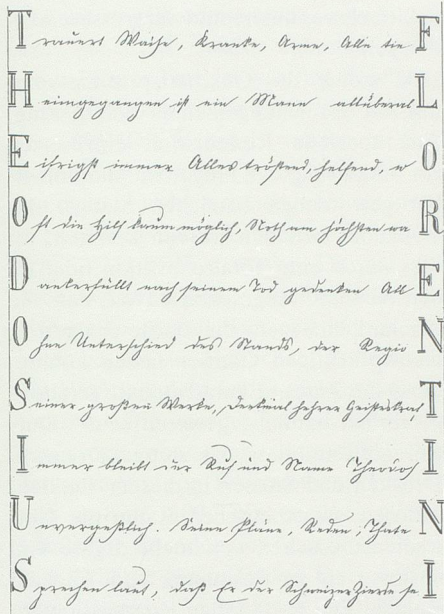 Trauert Waise, Kranke, Arme, Alle tieF
Heimgegangen ist ein Mann allüberaL
Eifrigst immer Alles tröstend, helfend, wO
Oft die Hilf kaum möglich, Noth am höchsten waR
Dankerfüllt nach seinem Tod gedenken AllE
Ohne Unterschied des Stands, der RegioN
Seiner großen Werke, Denkmal hehrer GeisteskrafT
Immer bleibt der Ruf und Name TheodosI
Unvergeßlich. Seine Pläne, Reden, ThateN
Sprechen laut, daß Er der Schweizer Zierde seI